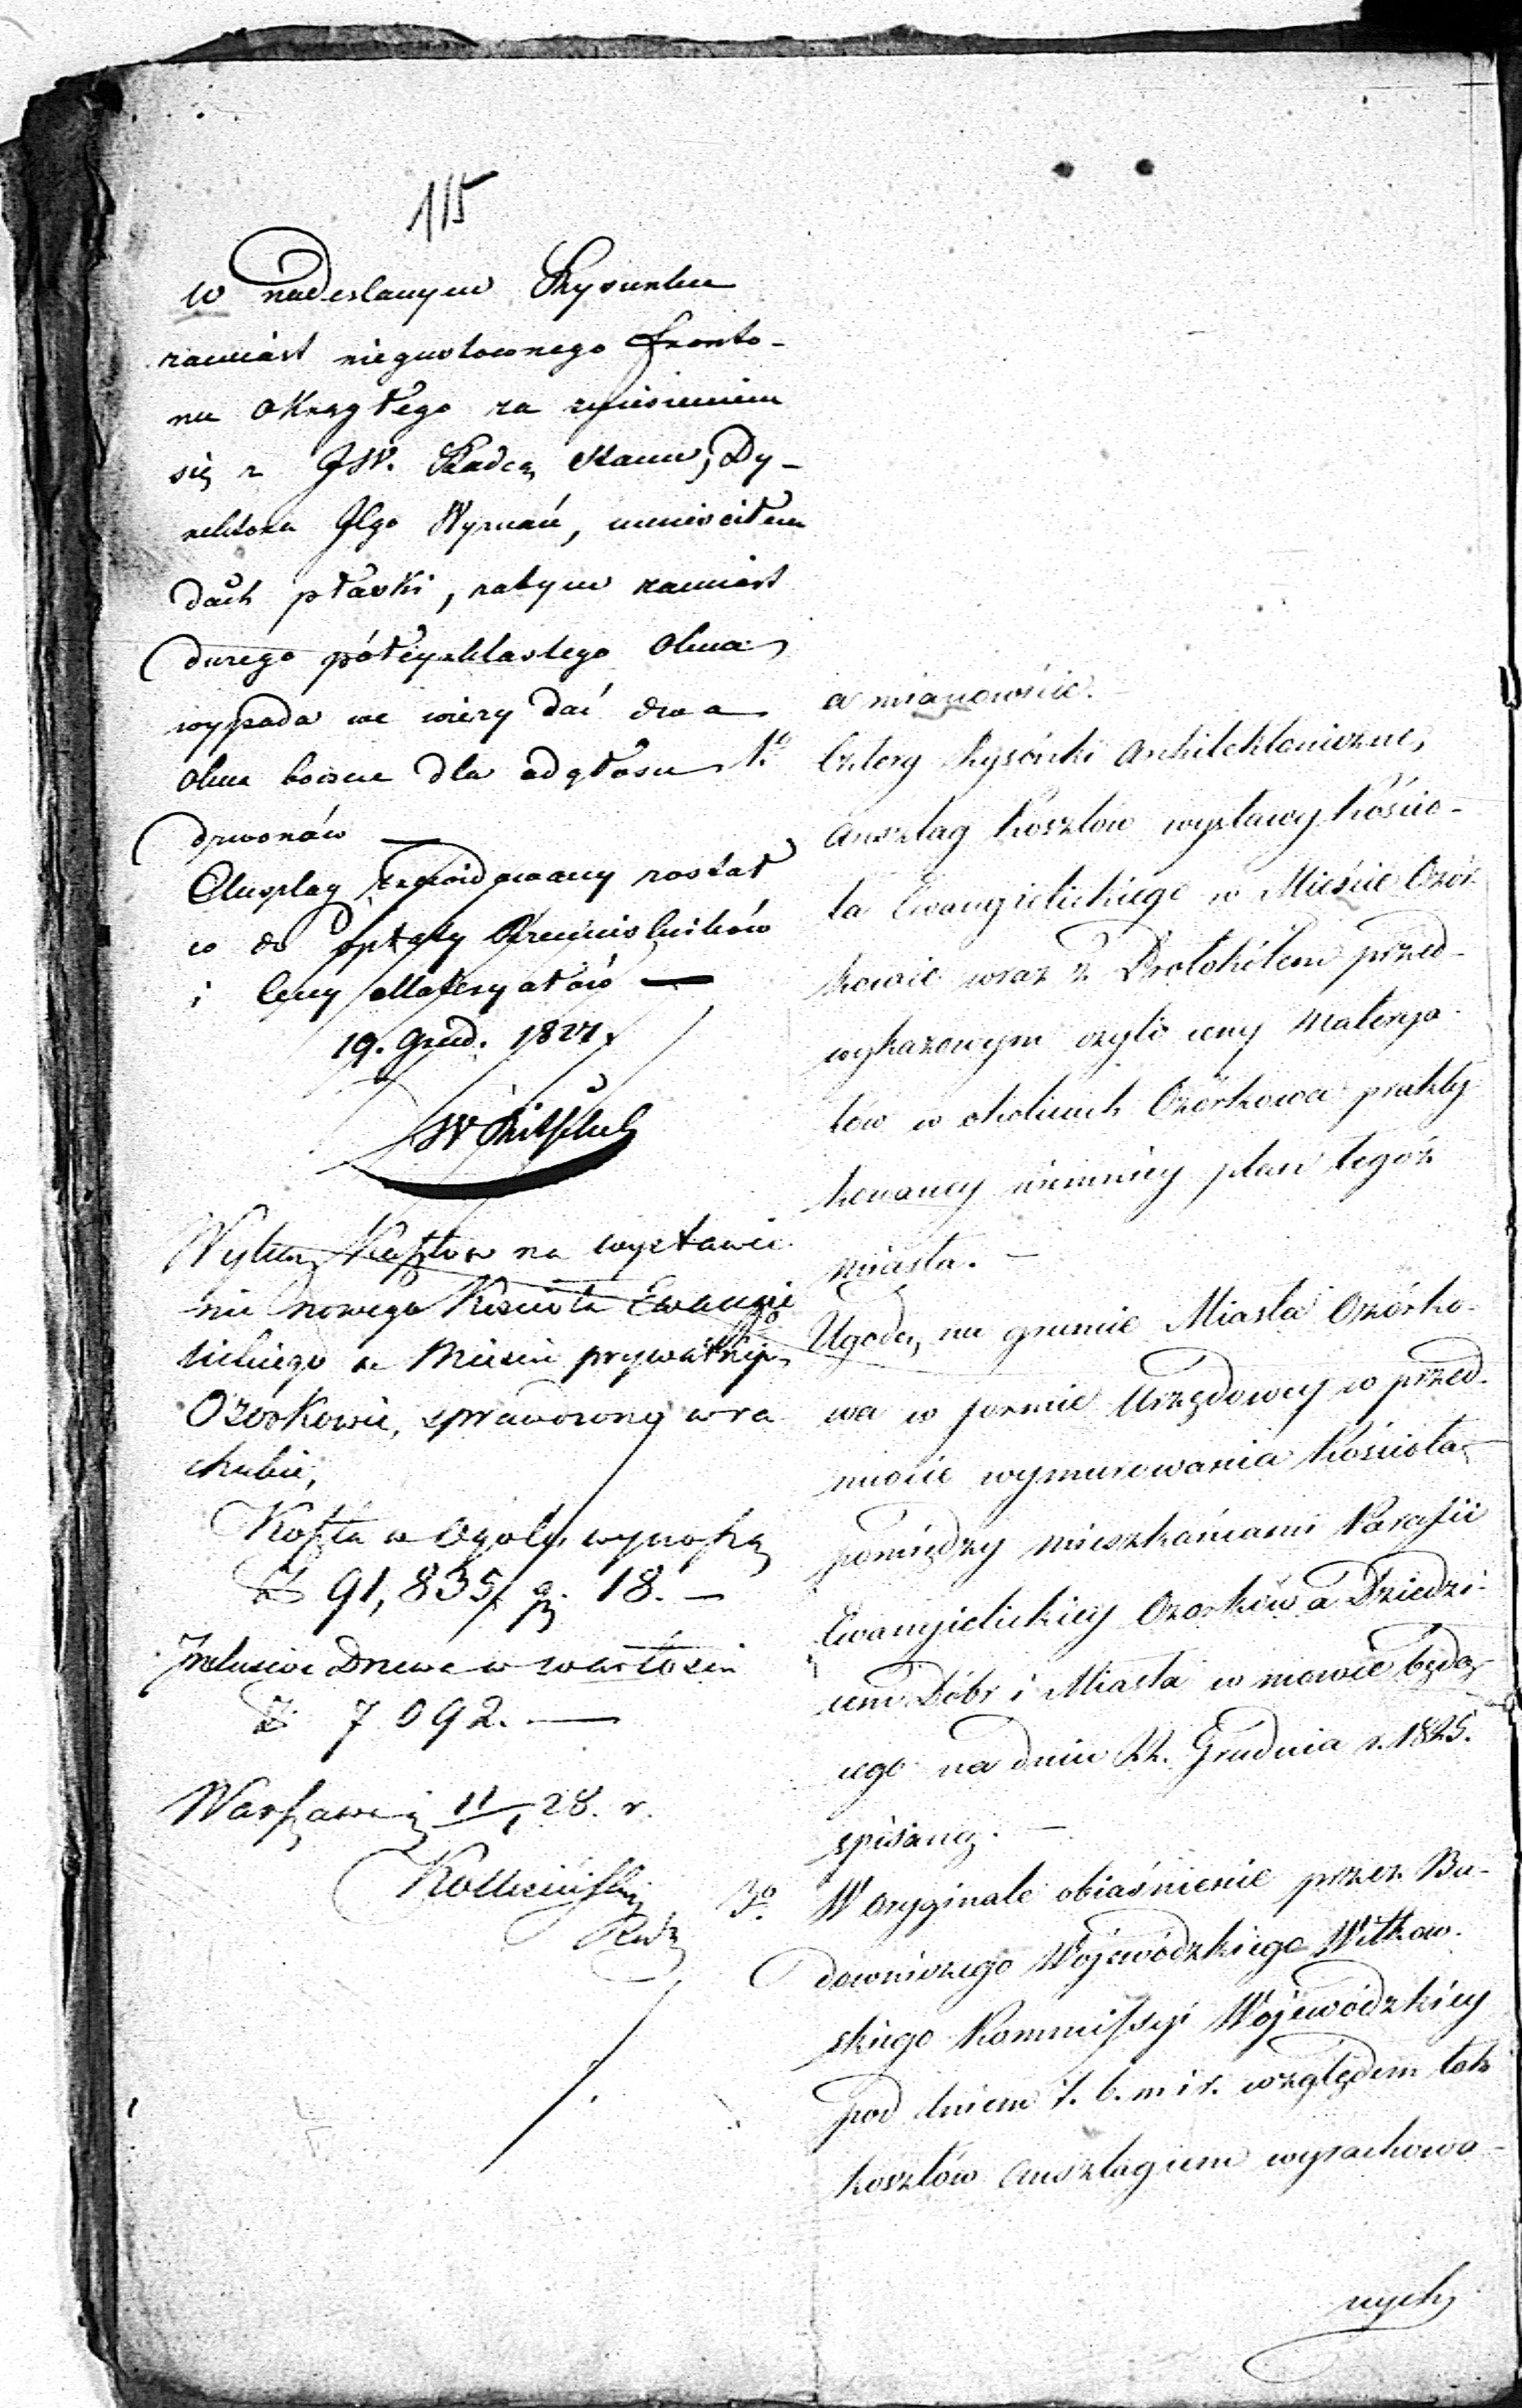 115
W nadesłanym Rysunku
zamiast niegustownego fronto-
nu okrągłego za zniesieniem
się z JW. Radcą Stanu, Dy-
rektora Jlgo Wyznań, umieściłem
dach płaski, zatym zamiast
durego półcyrklastego okna
wypada we wieży dać dwa
okna boczne dla odgłosu
dzwonów —
Anszlag zrewidowany został
co do opłaty Rzemieślników
i Ceny Materyałów —
19. Grud. 1827.
Wykaz Kosztow na wystawie
nie nowego Kościoła Ewangie
lickiego w Mieście prywatnym
Ozorkowie, sprawdzony w ra
chubie,
Koszta w Ogole wynoszą
Zł 91,835, gr. 18. —
Inclusive Drzewa w wartości
Zł 7092. —
Warszawa 11/1 28. r.
a mianowicie. —
1o Cztery Rysónki Architektoniczne,
Anszlag Kosztów wystawy Kościo-
ła Ewangielickiego w Mieście Ozór-
kowie wraz z Protokółem przed-
wykazowym czyli ceny Materya-
łów w okolicach Ozorkowa prakty-
kowaney niemniey plan tegoż
miasta. —
2o Ugodę, na gruncie Miasta Ozórko-
wa w formie Urzędowey w przed-
miocie wymurowania Kościoła
pomiędzy mieszkańcami Parafii
Ewangielickiey Ozorków a Dziedzi-
cem Dóbr i Miasta w mowie będą-
cego na dniu 22. Grudnia r. 1825.
spisaną. —
3o W oryginale obiaśnienie przez Bu-
downiczego Wojewódzkiego Witkow-
skiego Kommissyi Wojewódzkiey
pod dniem 7. b. m i r. względem tak
kosztów Anszlagiem wyrachowa-
nych